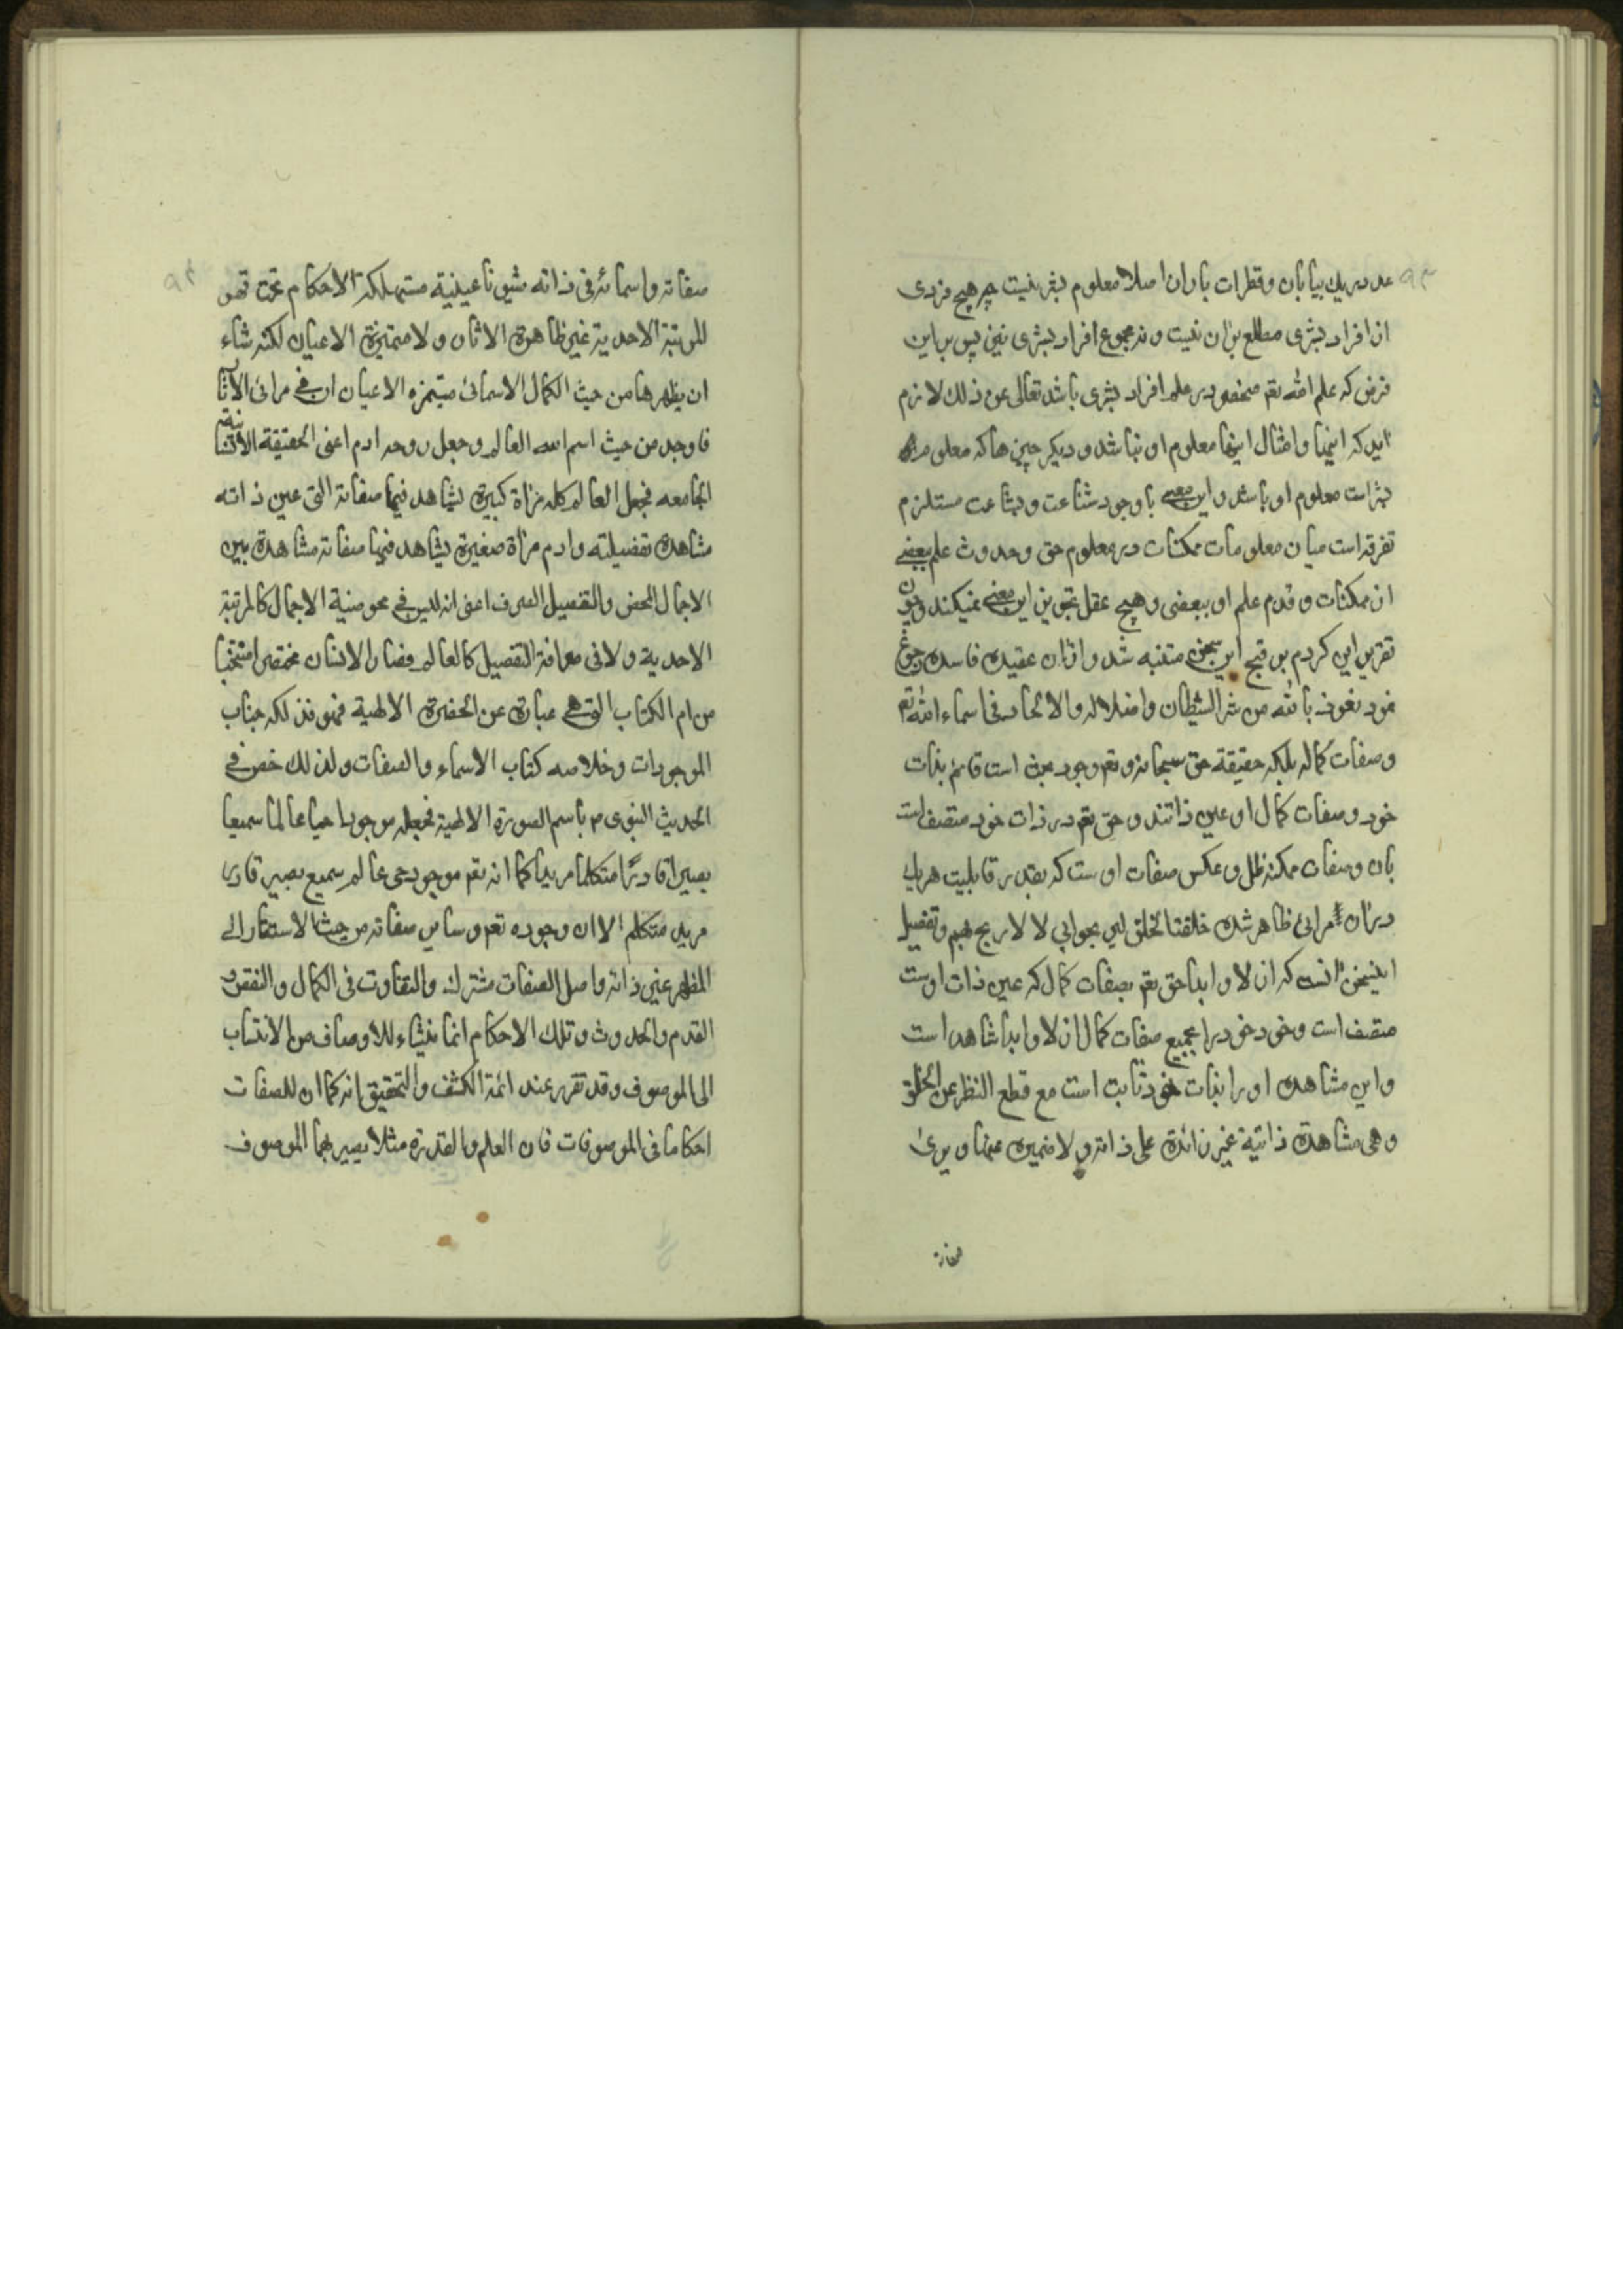 عدد ریك بیابان و قطرات باران اصلا معلوم بشر نیست چه هیچ فردی
از افراد بشری مطلع بران نیست و نه مجموع افراد بشری نیز پس براین
فرض که علم الله تعم منحصر در علم افراد بشری باشد تعالی عن ذلك لازم
اید که اینها و امثال اینها معلوم او نباشد و دیکر چیزها که معلوم
بشراست معلوم او باشد و این معنی با وجود شناعت و بشاعت مستلزم
تفرقه است میان معلومات ممکنات در معلوم حق و حدوث علم ببعضی
از ممکنات و قدم علم او ببعضی و هیچ عقل تجویز این معنی نمیکند و چون
تقریر این کردم بر قبح این سخن متنبه شد و ازان عقیده فاسده رجوع
نمود نعوذ بالله من شر الشیطان و اضلاله و الالحاد فی اسماء الله تعم
و صفات کماله بلکه حقیقة حق سبحانه و تعم وجود بحت است قایم بذات
خود و صفات کمال او عین ذاتند و حق تعم در ذات خود متصف است
بان و صفات ممکنه ظل و عکس صفات اوست که بقدر قابلیت هریك
دران مرائی ظاهر شده خلقتا لخلق لا لاربح بهم و تفصیل
اینسخن انست که ازلا و ابدا حق تعم بصفات کمال که عین ذات اوست
متصف است و خود خود را بجمیع صفات کمال ازلا و ابدا شاهد است
و این مشاهده او را بذات خود ثابت است مع قطع النظر عن الخلق
و هی مشاهدة ذاتیة غیر زائدة علی ذاته و لا متمیزه عنها و یری
صفاته
صفاته و اسمائه فی ذاته شیونا عینیة مستهلکة الاحکام تحت قهر
المرتبة الاحدیة غیر ظاهرة الاثار و لا متمیزة الاعیان لکنه شاء
ان یظهرها من حیث الکمال الاسمائی متمیزه الاعیان فی مرائی الاثار
فاوجد من حیث اسم الله العالم و جعل روحه ادم اعنی الحقیقة الانسانیة
الجامعه فجعل العالم کله مراة کبیرة لیشاهد فیها صفاته التی عین ذاته
مشاهدة تفصیلیه و ادم مراة صغیرة یشاهد فیها صفاته مشاهدة بین
الاجمال المحض و التفصیل الصرف اعنی انه لیس فی محوضیة الاجمال کالمرتبة
الاحدیة و لا فی صرافة التفصیل کالعالم فصار الانسان مختصرا منتخبا
من ام الکتاب التی هی عبارة عن الحضرة الالهیة فهو فذلکه جناب
الموجودات و خلاصه کتاب الاسماء و الصفات و لذلك خص فی
الحدیث النبوی م باسم الصورة الالهیة فجعله موجودا حیا عالما سمیعا
بصیرا قادرًا متکلما مریدا کما انه تعم موجود حی عالم سمیع بصیر قادر
مرید متکلم الا ان وجوده تعم و سایر صفاته من حیث الاستقار الی
المظهر عین ذاته و اصل الصفات مشترك و التفاوت فی الکمال و النقص و
القدم و الحدوث و تلك الاحکام انما ینشاء للاوصاف من الانتساب
الی الموصوف و قد تقرر عند ائمة الکشف و التحقیق انه کما ان للصفات
احکاما فی الموصوفات فان العلم و القدرة مثلا یصیر بهما الموصوف